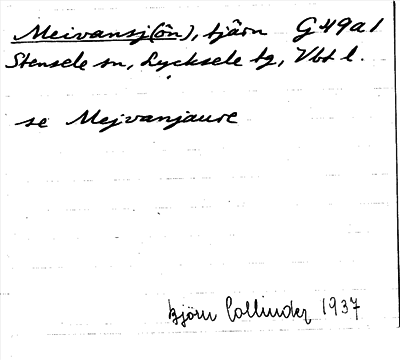 Meivansj(ön), tjärn G 49 a 1
Stensele sn, Lycksele tg, Vbt l.
se Mejvanjaure
Björn Collinder 1937